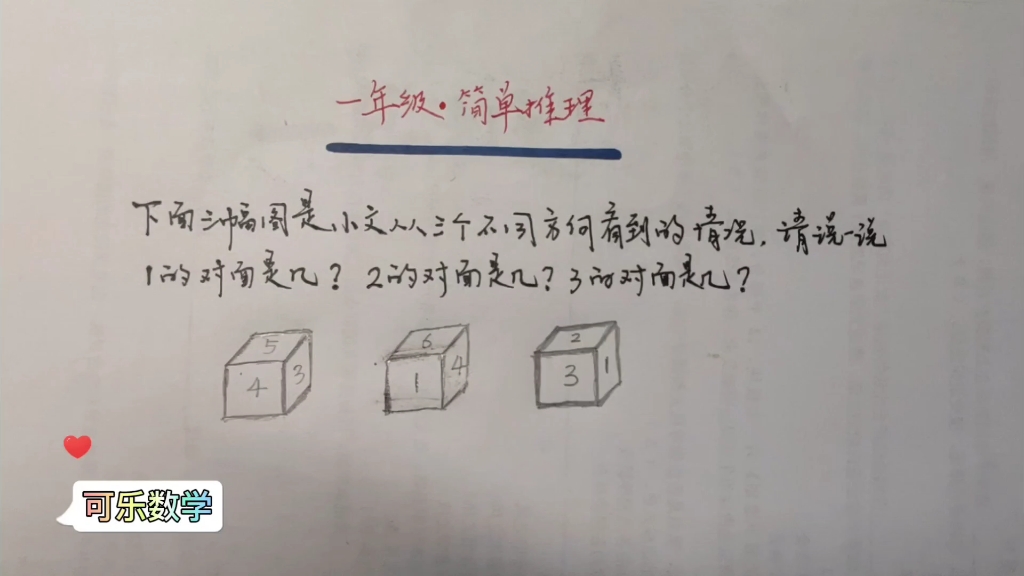 一年级·简单推理
下面三幅图是小文从三个不同方向看到的情况,请说一说
1的对面是几?2的对面是几?3的对面是几?
5
4 3
6
1 4
2
3 1
可乐数学